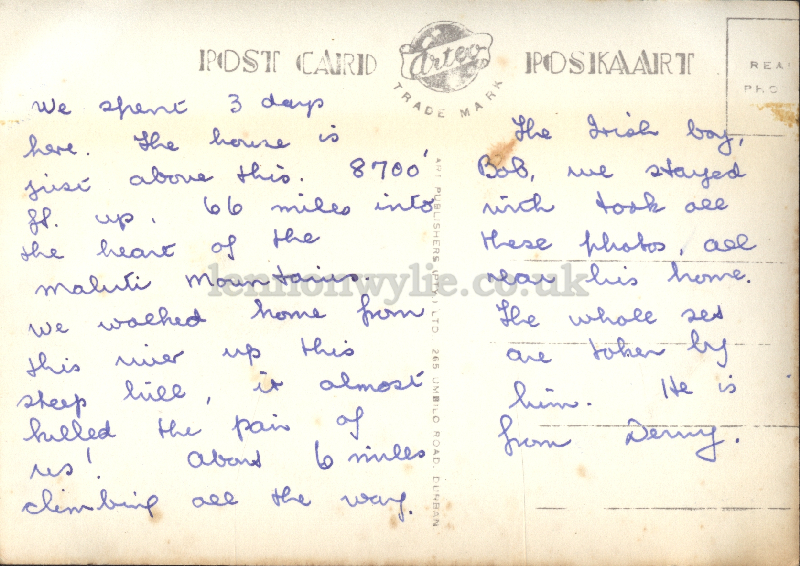 POST CARD
Artco
TRADE MARK
POSKAART
REA
PHO
We spent 3 days
here. The house is
just above this. 8700'
ft. up. 66 miles into
the heart of the
Maluti Mountains.
We walked home from
this river up this
steep hill, it almost
killed the pair of
us! About 6 miles
climbing all the way.
ART PUBLISHERS (PTY.) LTD. 265 UMBILO ROAD, DURBAN
The Irish boy,
Bob, we stayed
with took all
these photos, all
near his home.
The whole set
are taken by
him. He is
from Derry.
lennonwylie.co.uk